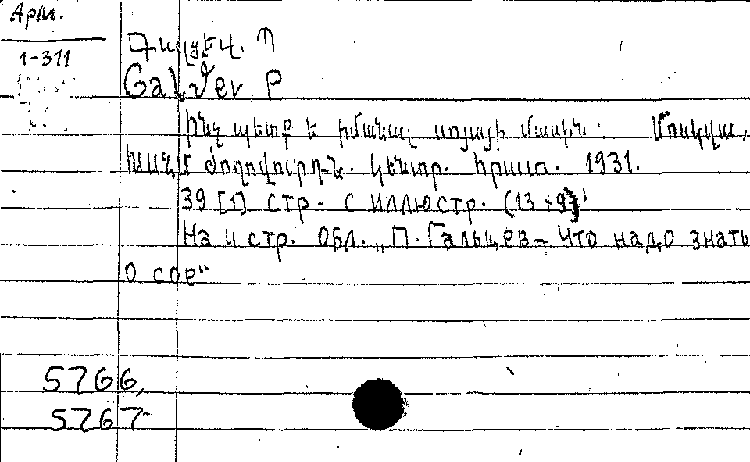 Арм.
1-311
Գալցեվ. Պ
Galцev P
Ինչ պետք է իմանալ սոյայի մասին: Մոսկվա,
ԽՍՀՄ ժողովուրդն. կենտր. հրատ. 1931.
39 [1] стр. с иллюстр. (13×9)
На 4 стр. обл. „П. Гальцев – Что надо знать
о сое"
5766,
5767